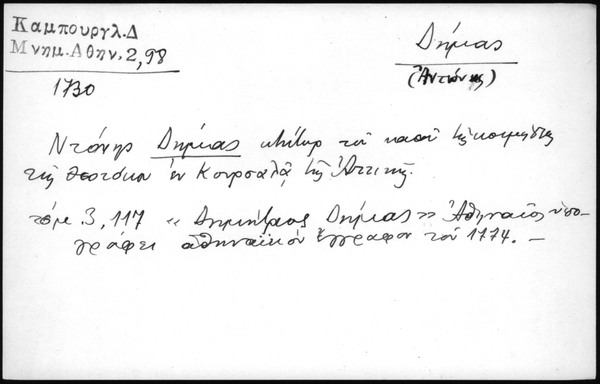 Καμπουργλ.Δ
Μνημ.Αθην.2,98
1730
Δήμας
(Ἀντώνης)
Ντόνης Δήμας κτήτωρ τοῦ ναοῦ τῆς κοιμήσεως
τῆς Θεοτόκου ἐν Κουρσαλᾷ τῆς Ἀττικῆς.
τόμ. 3, 117 « Δημήτριος Δήμας » Ἀθηναῖος ὑπο-
γράφει ἀθηναϊκὸν ἔγγραφον τοῦ 1774. —